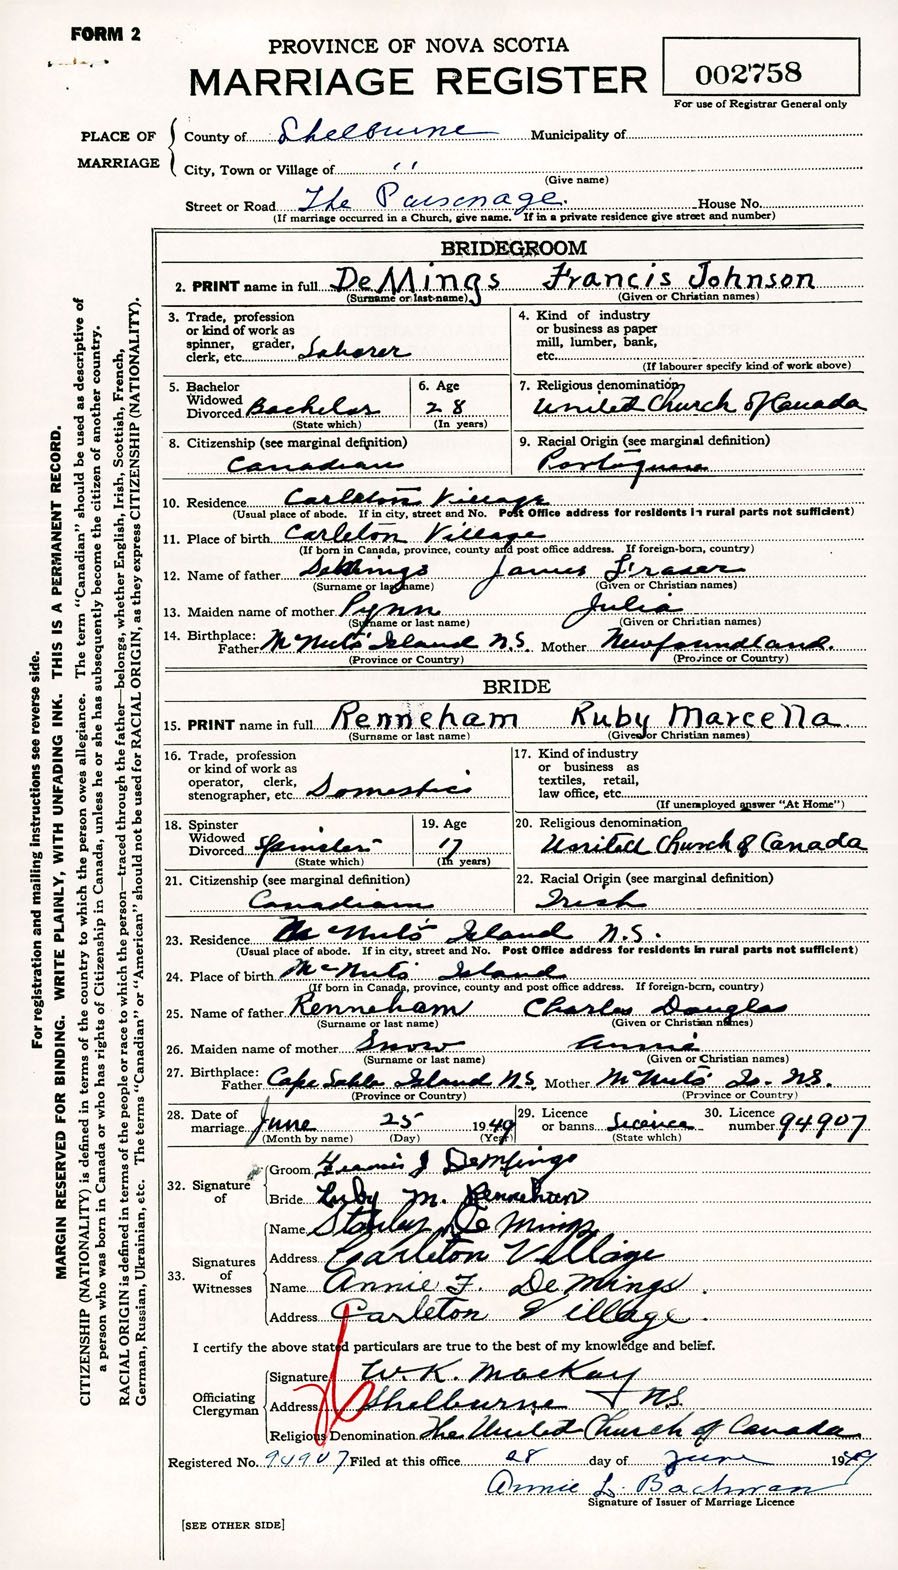 FORM 2
PROVINCE OF NOVA SCOTIA
MARRIAGE REGISTER
002758
For use of Registrar General only
PLACE OF MARRIAGE
County of Shelburne Municipality of
City, Town or Village of " (Give name)
Street or Road The Parsonage. House No.
(If marriage occurred in a Church, give name. If in a private residence give street and number)
BRIDEGROOM
2. PRINT name in full DeMings Francis Johnson
(Surname or last name) (Given or Christian names)
3. Trade, profession or kind of work as spinner, grader, clerk, etc. Laborer
4. Kind of industry or business as paper mill, lumber, bank, etc.
(If labourer specify kind of work above)
5. Bachelor Widowed Divorced Bachelor (State which)
6. Age 28 (In years)
7. Religious denomination United Church of Canada
8. Citizenship (see marginal definition) Canadian
9. Racial Origin (see marginal definition) Portoguese
10. Residence Carleton Village
(Usual place of abode. If in city, street and No. Post Office address for residents in rural parts not sufficient)
11. Place of birth Carleton Village
(If born in Canada, province, county and post office address. If foreign-born, country)
12. Name of father DeMings James Fraser
(Surname or last name) (Given or Christian names)
13. Maiden name of mother Pynn Julia
(Surname or last name) (Given or Christian names)
14. Birthplace: Father McNuts Island N.S. Mother Newfoundland.
(Province or Country) (Province or Country)
BRIDE
15. PRINT name in full Renneham Ruby Marcella
(Surname or last name) (Given or Christian names)
16. Trade, profession or kind of work as operator, clerk, stenographer, etc. Domestic
17. Kind of industry or business as textiles, retail, law office, etc.
(If unemployed answer "At Home")
18. Spinster Widowed Divorced Spinster (State which)
19. Age 17 (In years)
20. Religious denomination United Church of Canada
21. Citizenship (see marginal definition) Canadian
22. Racial Origin (see marginal definition) Irish
23. Residence McNuts Island N.S.
(Usual place of abode. If in city, street and No. Post Office address for residents in rural parts not sufficient)
24. Place of birth McNuts Island
(If born in Canada, province, county and post office address. If foreign-born, country)
25. Name of father Renneham Charles Douglas
(Surname or last name) (Given or Christian names)
26. Maiden name of mother Snow Annie
(Surname or last name) (Given or Christian names)
27. Birthplace: Father Cape Sable Island N.S. Mother McNuts Is. N.S.
(Province or Country) (Province or Country)
28. Date of marriage June 25 1949
(Month by name) (Day) (Year)
29. Licence or banns Licence (State which)
30. Licence number 94907
32. Signature of
Groom Francis J DeMings
Bride Ruby M. Renneham
33. Signatures of Witnesses
Name Stanley De Mings
Address Carleton Village
Name Annie F. De Mings.
Address Carleton Village.
I certify the above stated particulars are true to the best of my knowledge and belief.
Officiating Clergyman
Signature W. K. MacKay
Address Shelburne N.S.
Religious Denomination The United Church of Canada
Registered No. 94907 Filed at this office 28 day of June 1949
Annie L. Bachman
Signature of Issuer of Marriage Licence
[SEE OTHER SIDE]
For registration and mailing instructions see reverse side.
MARGIN RESERVED FOR BINDING. WRITE PLAINLY, WITH UNFADING INK. THIS IS A PERMANENT RECORD.
CITIZENSHIP (NATIONALITY) is defined in terms of the country to which the person owes allegiance. The term "Canadian" should be used as descriptive of
a person who was born in Canada or who has rights of Citizenship in Canada, unless he or she has subsequently become the citizen of another country.
RACIAL ORIGIN is defined in terms of the people or race to which the person—traced through the father—belongs, whether English, Irish, Scottish, French,
German, Russian, Ukrainian, etc. The terms "Canadian" or "American" should not be used for RACIAL ORIGIN, as they express CITIZENSHIP (NATIONALITY).